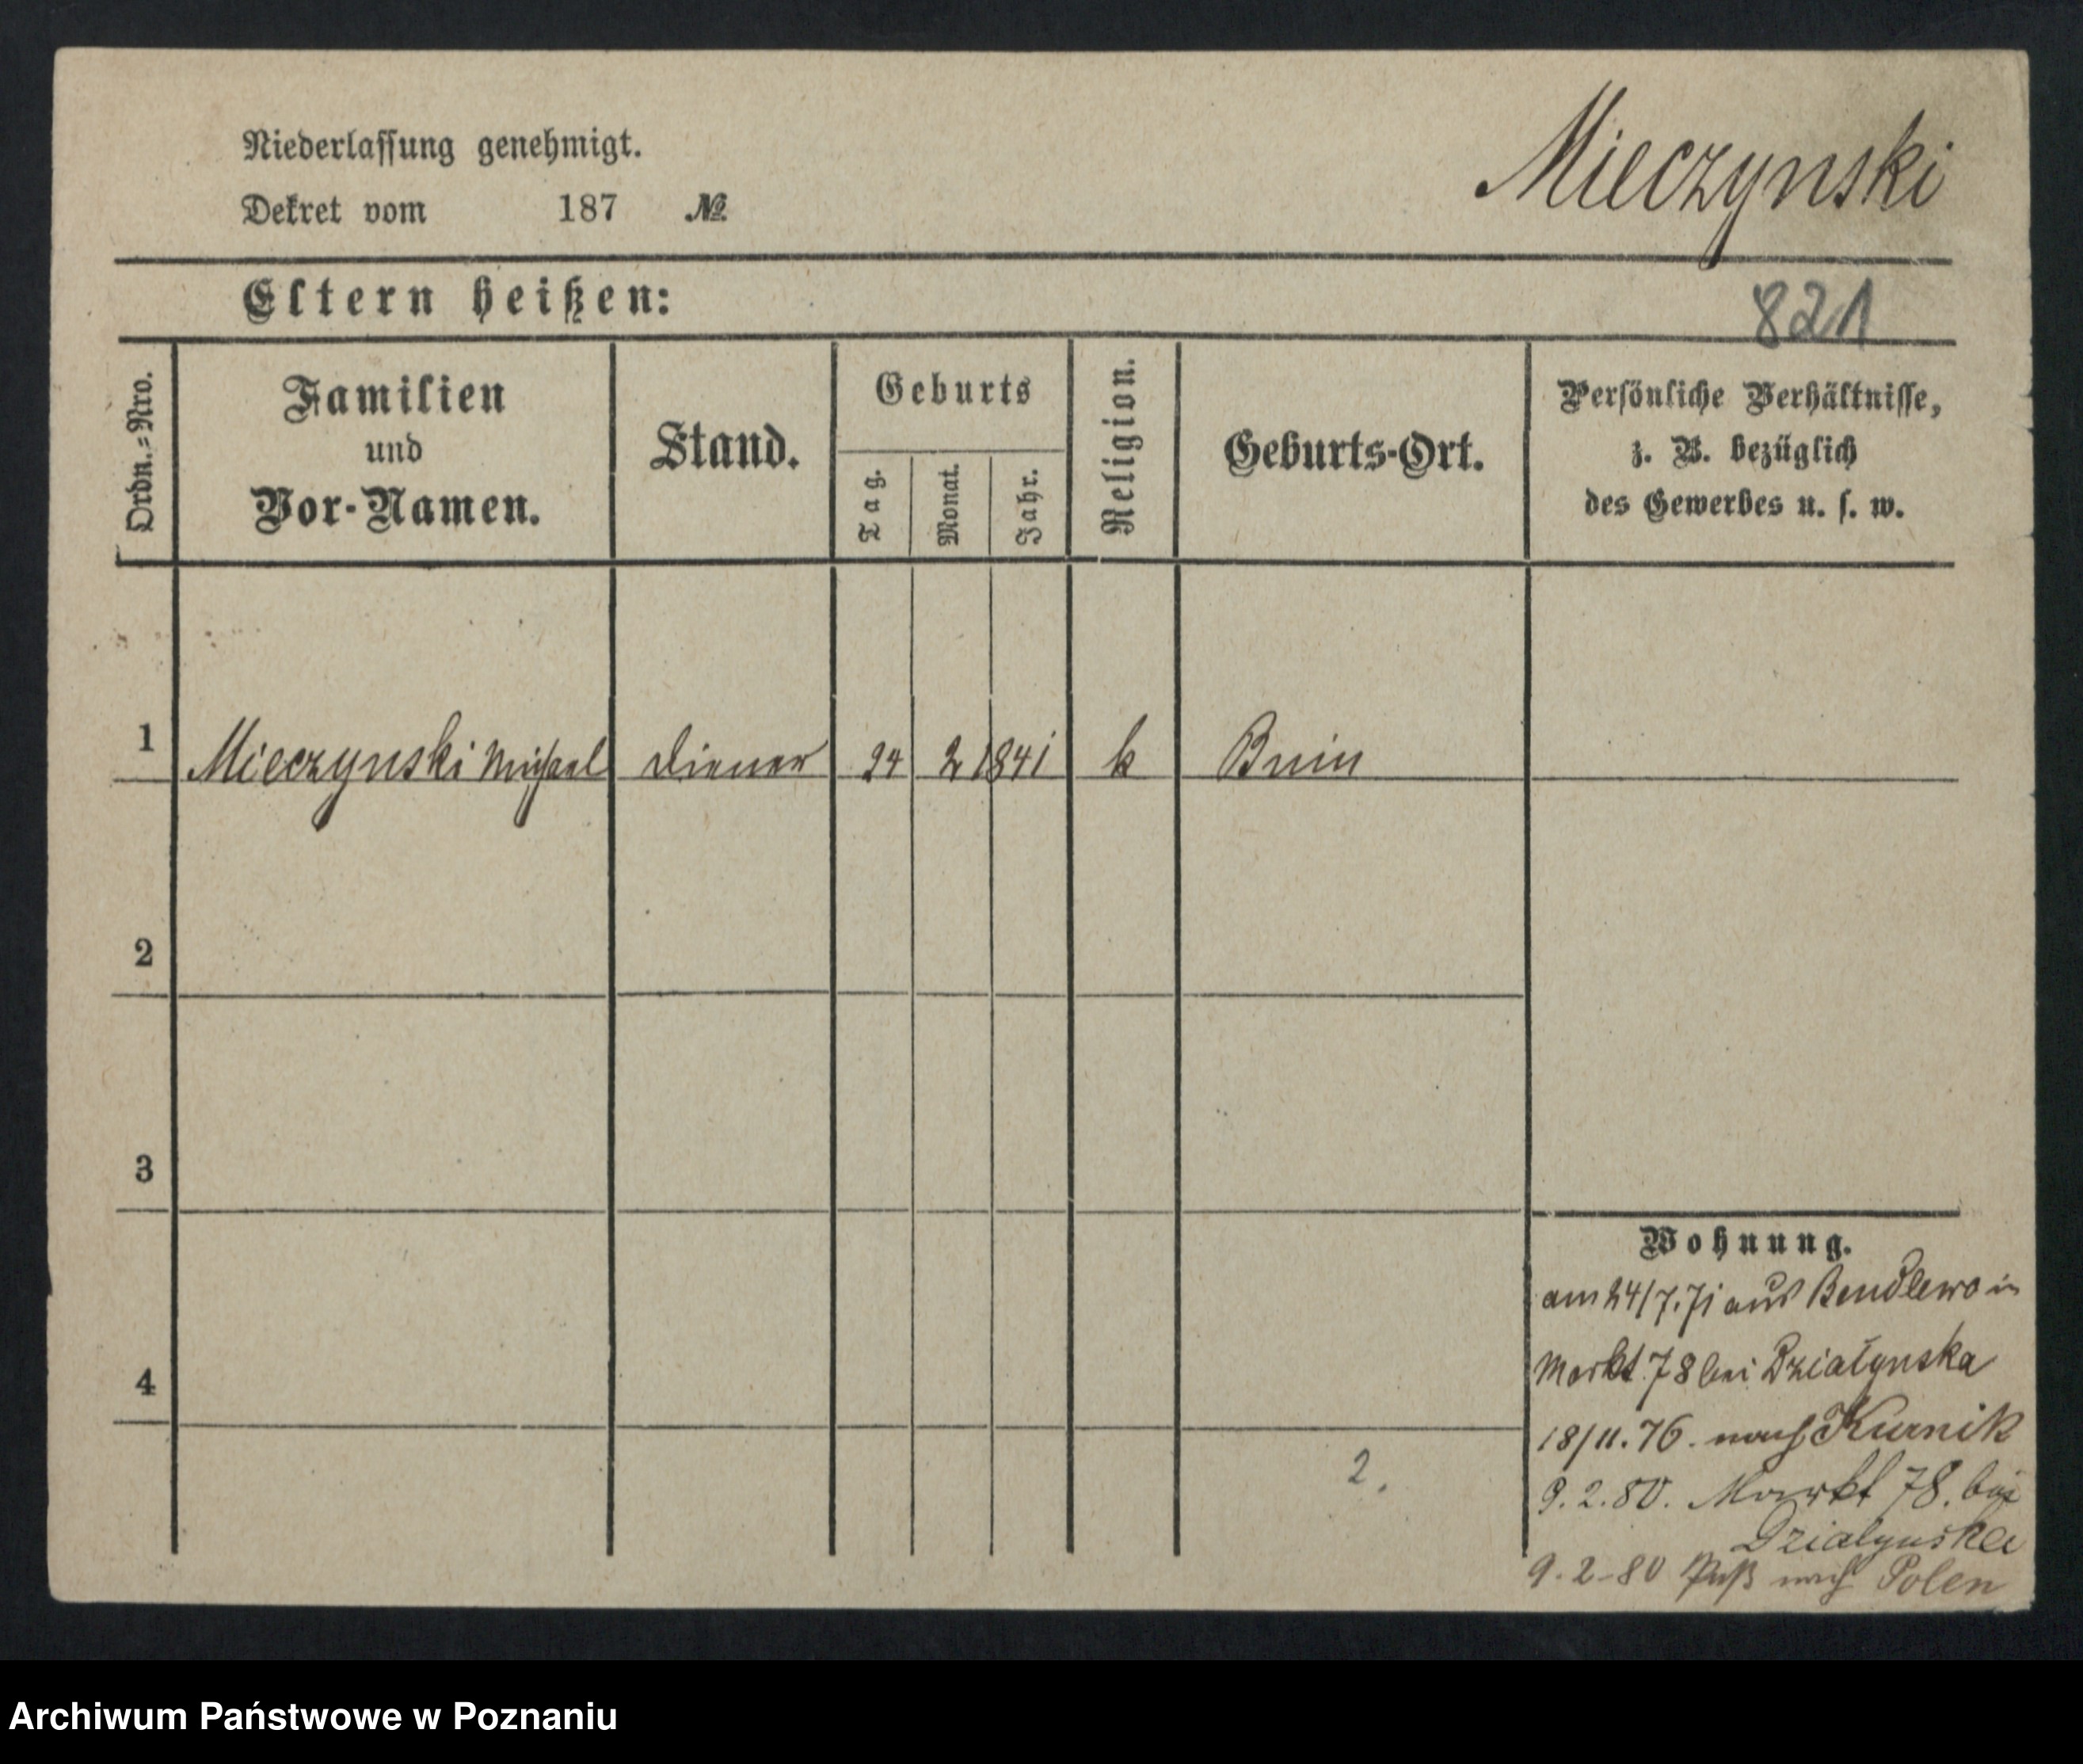 Niederlassung genehmigt.
Mieczynski
Dekret vom 187 №
Eltern heißen:
821
Ordn.=Nro.
Familien
und
Vor-Namen.
Stand.
Geburts
Tag.
Monat.
Jahr.
Religion.
Geburts-Ort.
Persönliche Verhältnisse,
z. B. bezüglich
des Gewerbes u. s. w.
1 Mieczynski Michael Diener 24 2 1841 k Bnin
2
3
4
Wohnung.
am 24/7.71 aus Bendlewo in
Markt 78 bei Działynska
18/11.76. nach Kurnik
9.2.80. Markt 78. bei
Dzialynska
9.2-80 Paß nach Polen
2.
Archiwum Państwowe w Poznaniu